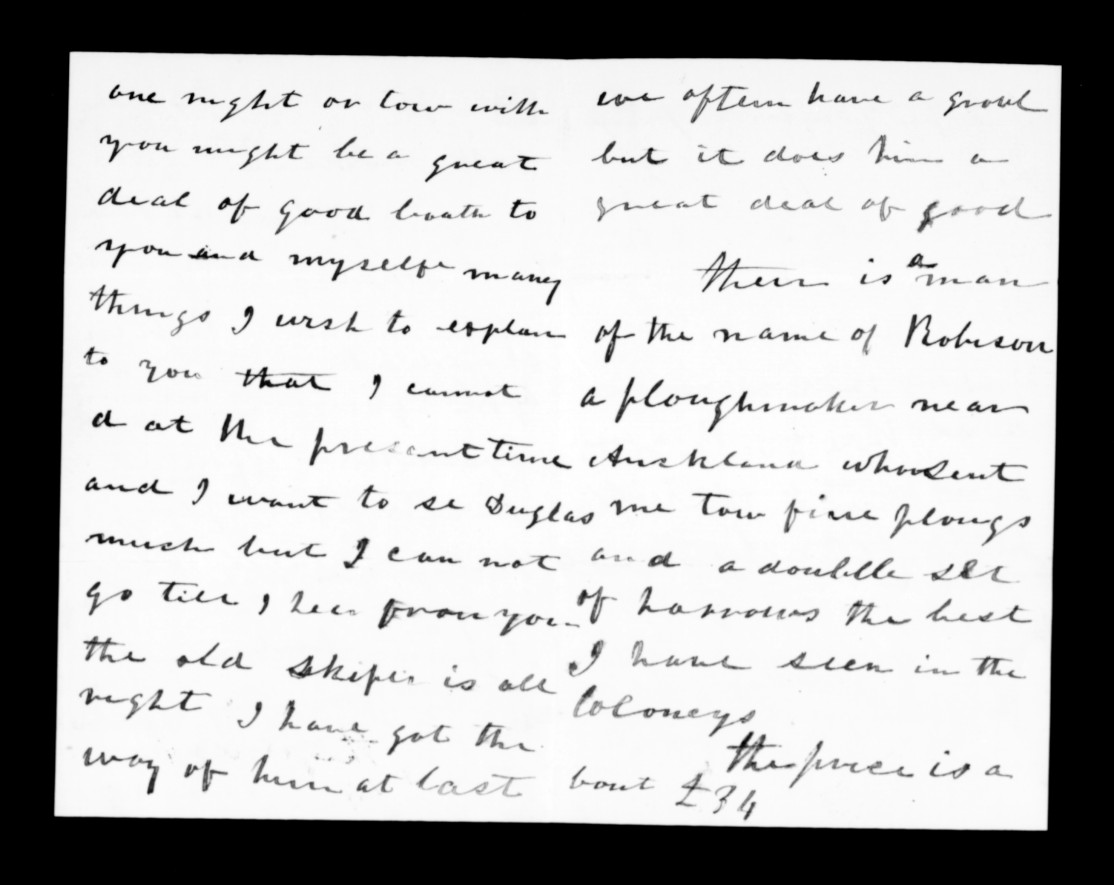 one night or tow with
you might be a great
deal of good boath to
you and myselfe maney
things I wish to explan
to you that I cannot
d at the present time
and I want to se Duglas
much but I can not
go till I hear from you
the old skiper is all
right I have got the
way of him at last
we oftern have a growl
but it does him a
great deal of good
their is a man
of the name of Robison
a ploughmaker near
Auskland who sent
me tow fine plougs
and a doublle set
of harrows the best
I have seen in the
Coloneys
the price is a
bout £34